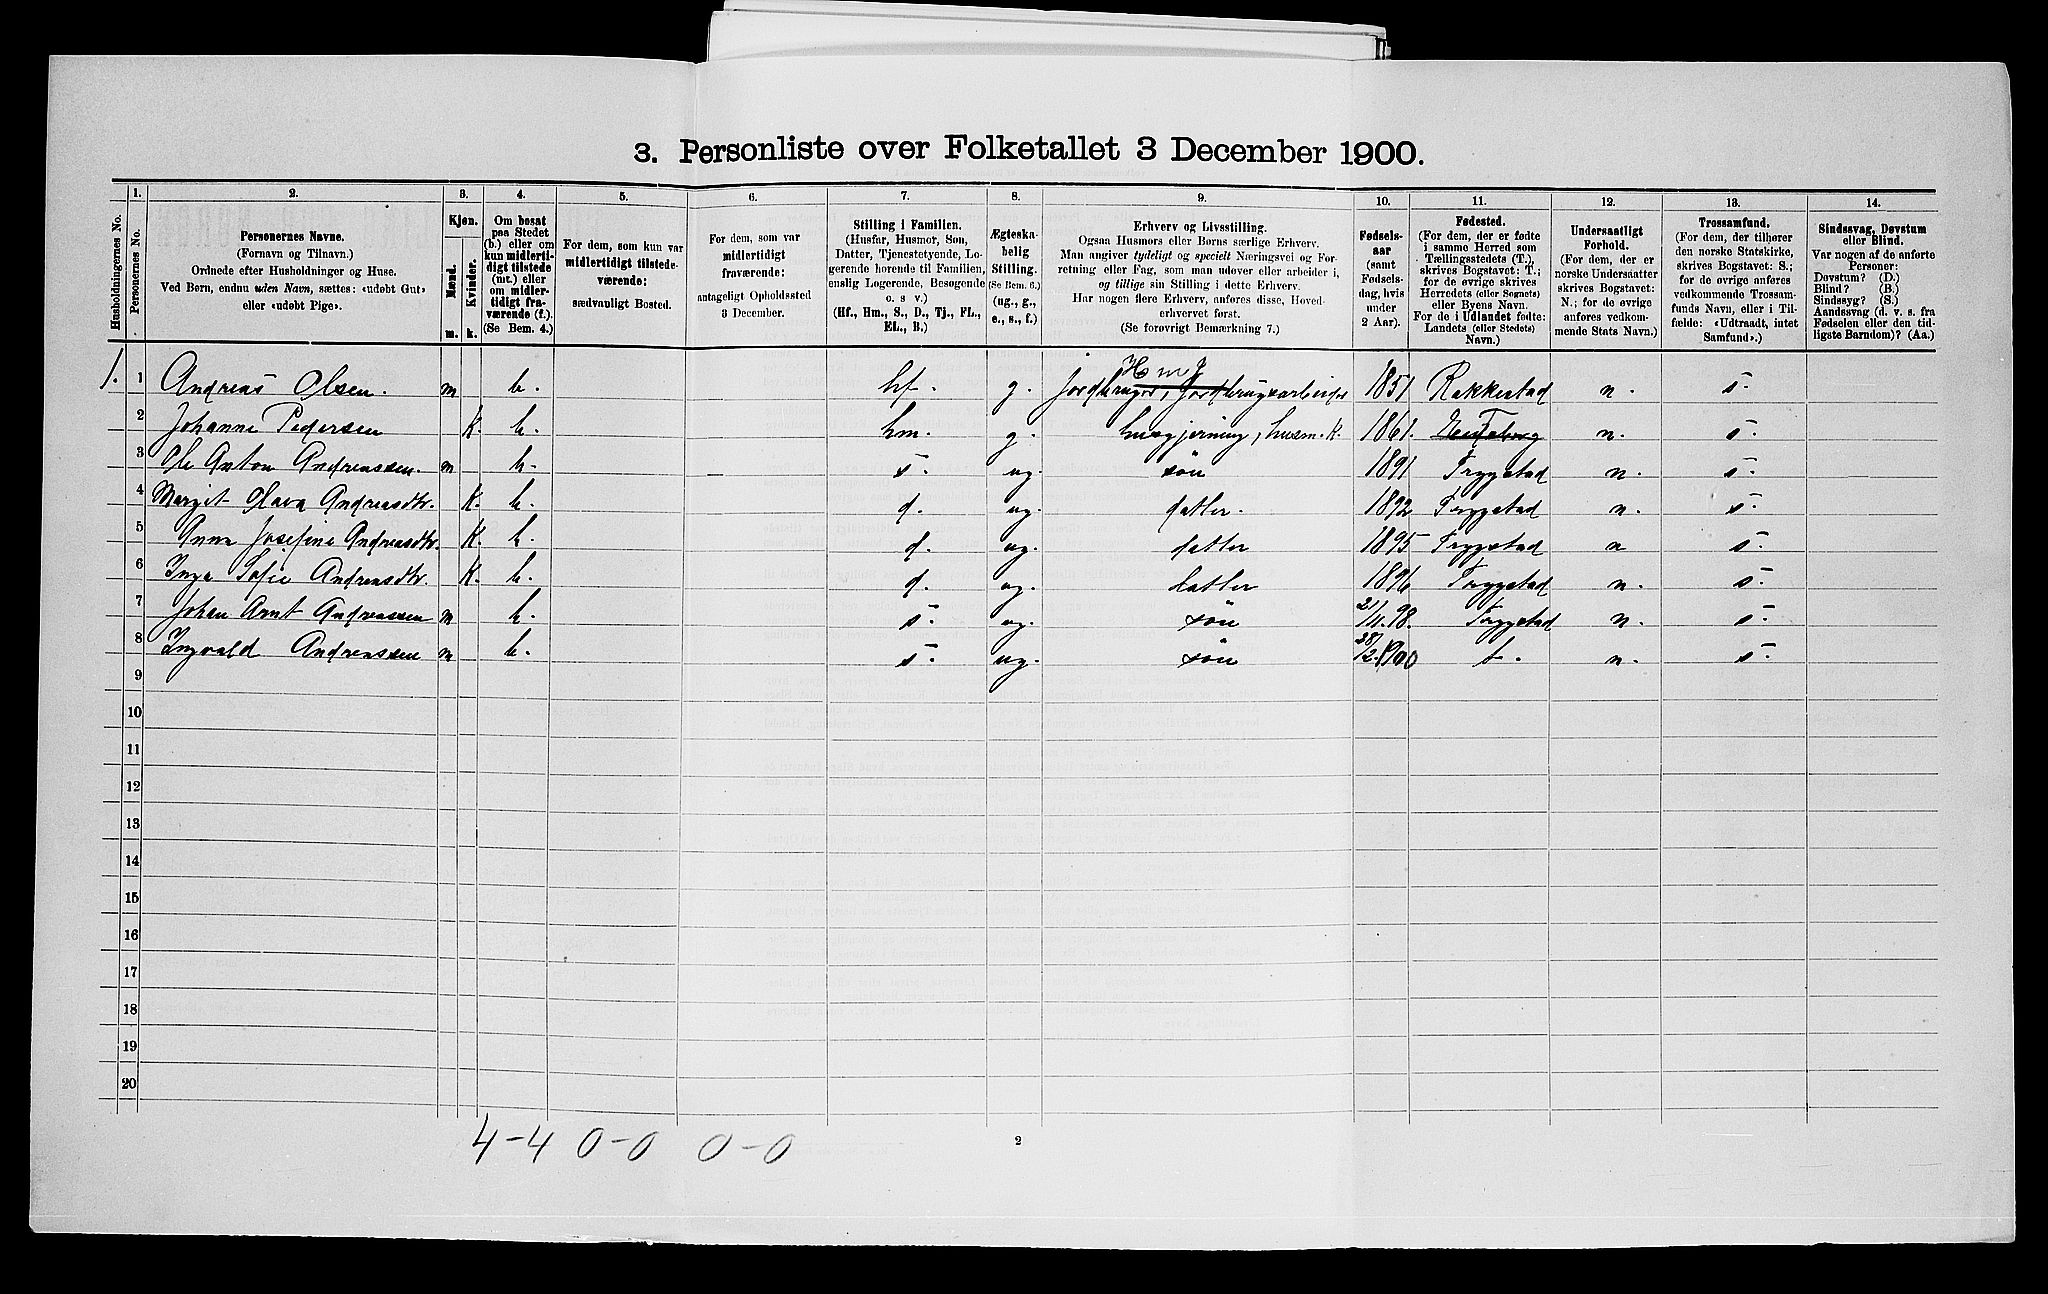 3. Personliste over Folketallet 3 December 1900.
Husholdningernes No.
1. Personernes No.
2. Personernes Navne.
(Fornavn og Tilnavn.)
Ordnede efter Husholdninger og Huse.
Ved Børn, endnu uden Navn, sættes: «udøbt Gut»
eller «udøbt Pige».
3. Kjøn.
Mænd. m.
Kvinder. k.
4. Om bosat
paa Stedet
(b.) eller om
kun midlerti-
digt tilstede
(mt.) eller
om midler-
tidigt fra-
værende (f.).
(Se Bem. 4.)
5. For dem, som kun var
midlertidigt tilstede-
værende:
sædvanligt Bosted.
6. For dem, som var
midlertidigt
fraværende:
antageligt Opholdssted
3 December.
7. Stilling i Familien.
(Husfar, Husmor, Søn,
Datter, Tjenestetyende, Lo-
gerende hørende til Familien,
enslig Logerende, Besøgende
o. s v.)
(Hf., Hm., S., D., Tj., FL.,
EL., B.)
8. Ægteska-
belig
Stilling.
(Se Bem. 6.)
(ug., g.,
e., s., f.)
9. Erhverv og Livsstilling.
Ogsaa Husmors eller Børns særlige Erhverv.
Man angiver tydeligt og specielt Næringsvei og For-
retning eller Fag, som man udøver eller arbeider i,
og tillige sin Stilling i dette Erhverv.
Har nogen flere Erhverv, anføres disse, Hoved-
erhvervet først.
(Se forøvrigt Bemærkning 7.)
10. Fødsels-
aar
(samt
Fødsels-
dag, hvis
under
2 Aar).
11. Fødested.
(For dem, der er fødte
i samme Herred som
Tællingsstedets (T.),
skrives Bogstavet: T.;
for de øvrige skrives
Herredets (eller Sognets)
eller Byens Navn.
For de i Udlandet fødte:
Landets (eller Stedets)
Navn.)
12. Undersaatligt
Forhold.
(For dem, der er
norske Undersaatter
skrives Bogstavet:
N.; for de øvrige
anføres vedkom-
mende Stats Navn.)
13. Trossamfund.
(For dem, der tilhører
den norske Statskirke,
skrives Bogstavet: S.;
for de øvrige anføres
vedkommende Trossam-
funds Navn, eller i Til-
fælde: «Udtraadt, intet
Samfund».)
14. Sindssvag, Døvstum
eller Blind.
Var nogen af de anførte
Personer:
Døvstum? (D.)
Blind? (B.)
Sindssyg? (S.)
Aandssvag (d. v. s. fra
Fødselen eller den tid-
ligste Barndom)? (Aa.)
H m J
1. 1 Andreas Olsen. m b. hf. g. jordbruger, jordbrugsarbeider 1851 Rakkestad n. s.
2 Johanne Pedersen K. b. hm. g. husgjerning, husm. K. 1861. n. s.
3 Ole Anton Andreassen. m b. s. ug. søn 1891 Trygstad n. s.
4 Margit Olava Andreasdtr. K. b. d. ug. datter. 1892 Trygstad n. s.
5 Anna Josefine Andreasdtr. K. b. d. ug. datter 1895 Trygstad n s.
6 Inga Sofie Andreasdtr. K. b. d. ug. datter 1896 Trygstad n. s.
7 Johan Arnt Andreassen m b. s. ug. søn 21/4.98. Trygstad n. s.
8 Ingvald Andreassen m b. s. ug. søn 28/2.1900 t. n. s.
9
10
11
12
13
14
15
16
17
18
19
20
4-4 0-0 0-0
2